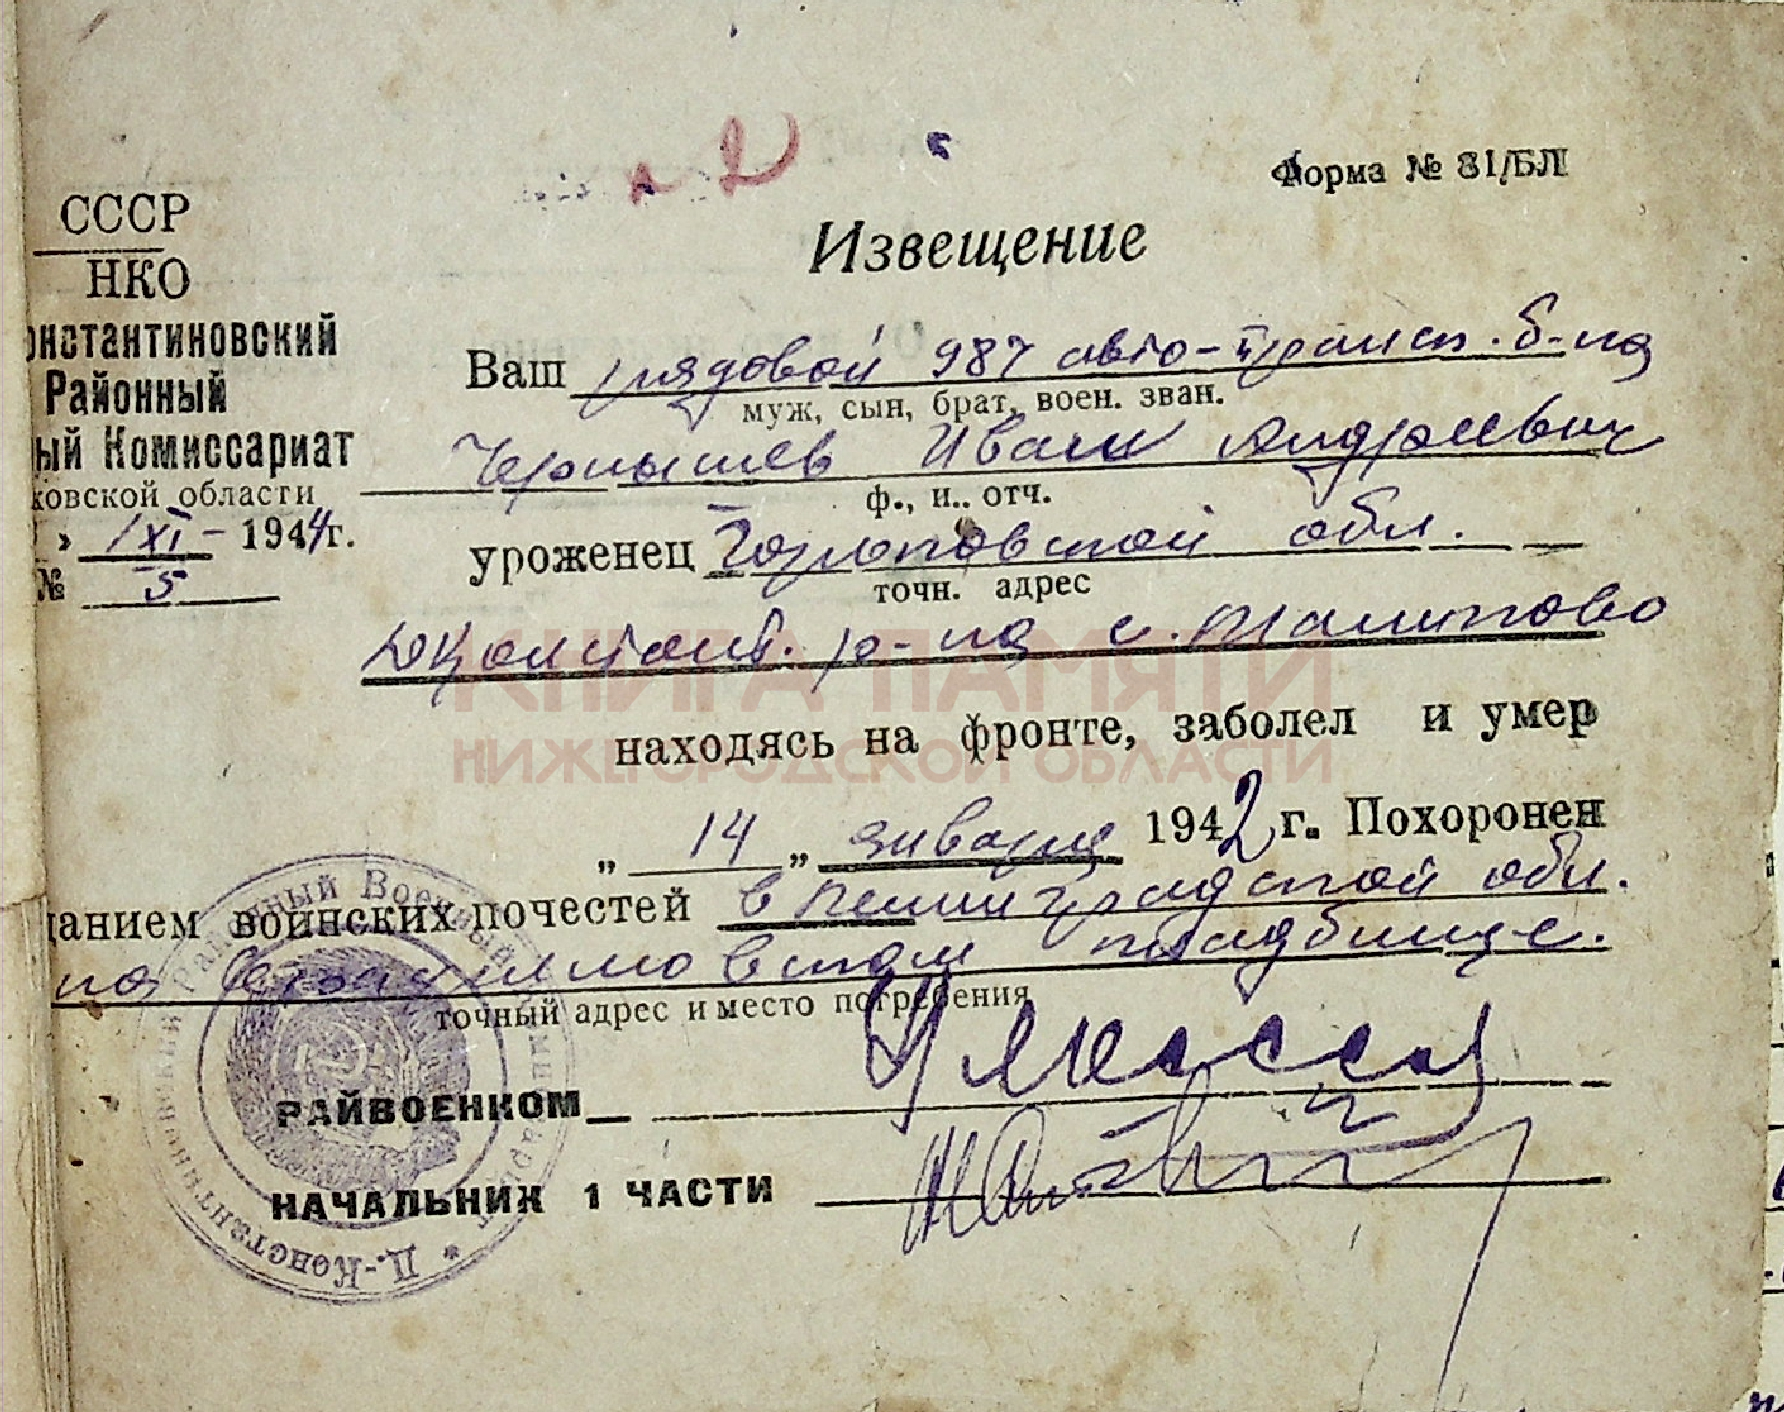 Форма № 81/БЛ
СССР
НКО
онстантиновский
Районный
ный Комиссариат
ковской области
1 XI - 1944г.
№ 5
Извещение
Ваш рядовой 987 авто-трансп. б-на
муж, сын, брат, воен. зван.
Чернышев Иван Андреевич
ф., и.. отч.
уроженец Горьковской обл.
точн. адрес
Дконстант. р-на с.
находясь на фронте, заболел и умер
„ 14 „ января 1942 г. Похоронен
данием воинских почестей в Ленинградской обл.
на кладбище.
точный адрес и место погребения
РАЙВОЕНКОМ
НАЧАЛЬНИК 1 ЧАСТИ
Д.-Константиновский Районный Военный Комиссариат
КНИГА ПАМЯТИ
НИЖЕГОРОДСКОЙ ОБЛАСТИ